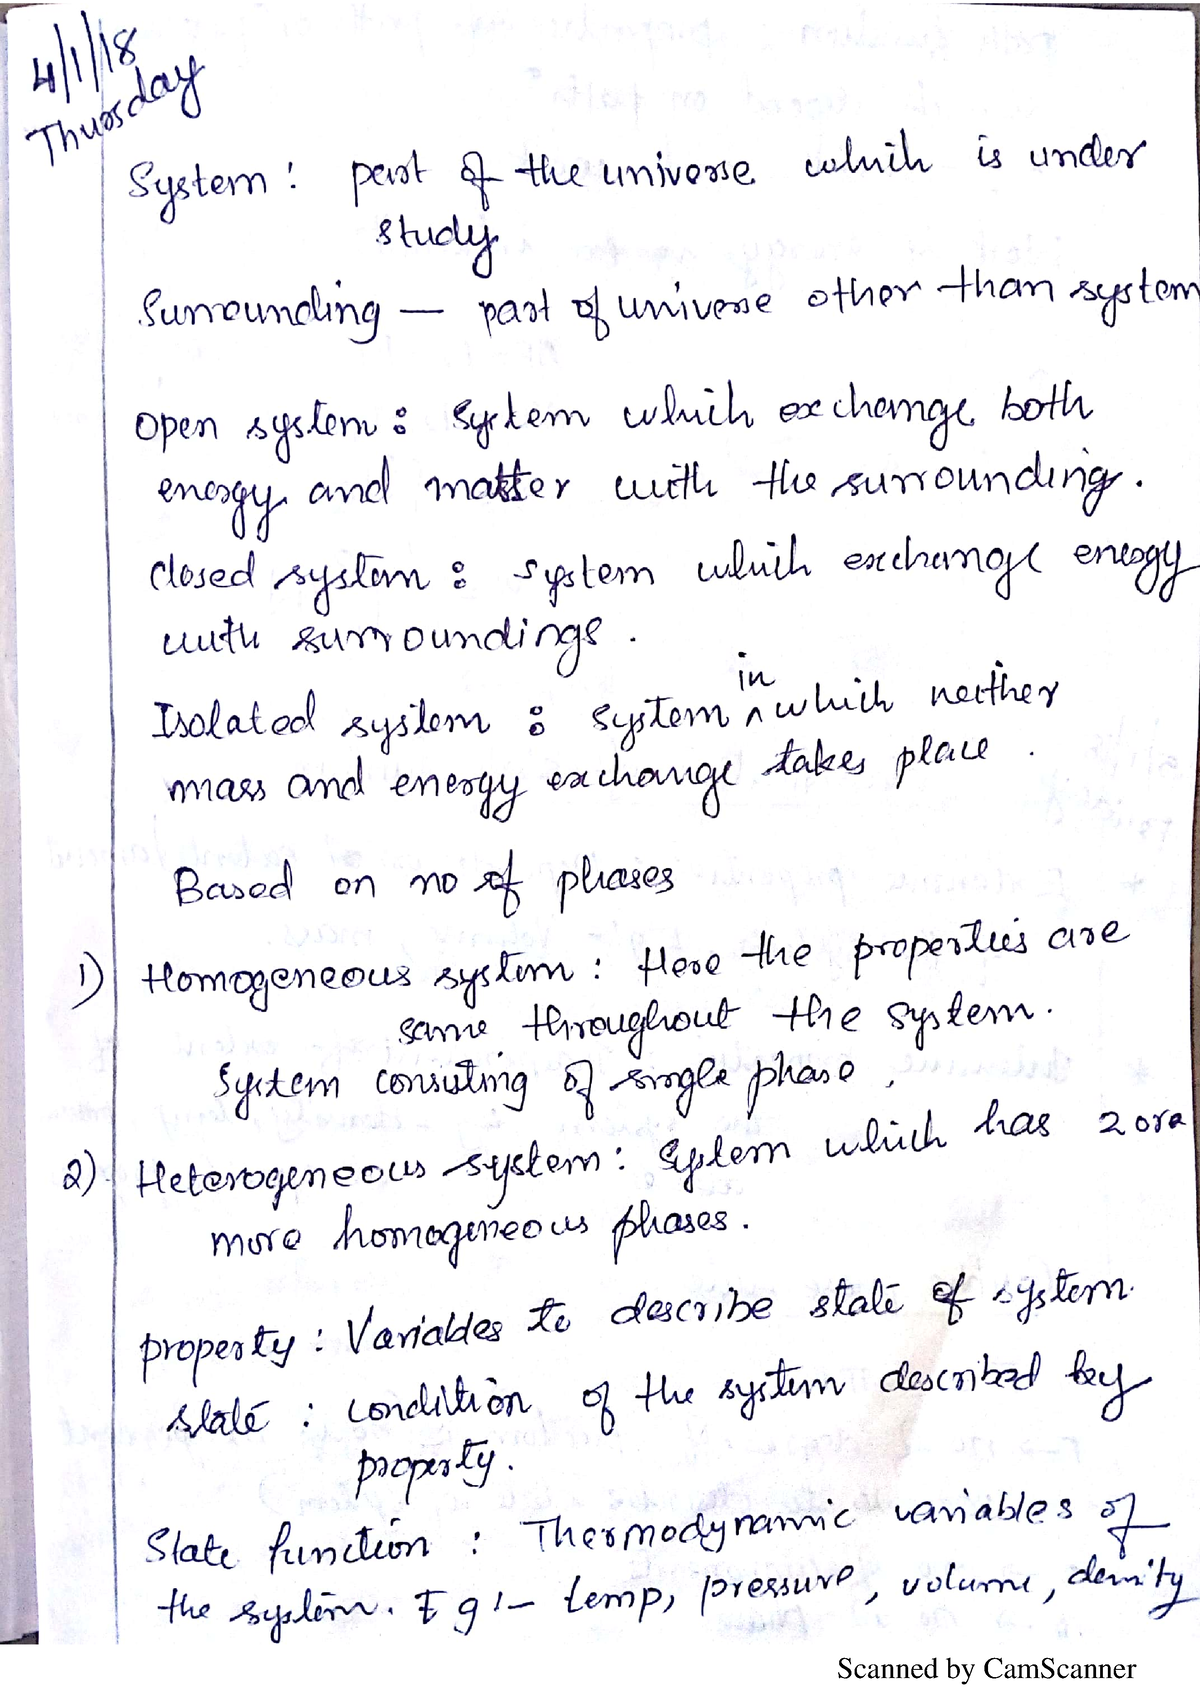 4/1/18
Thursday
System : part of the universe which is under
study
Surrounding — part of universe other than system
Open system : System which exchange both
energy and matter with the surrounding.
Closed system : system which exchange energy
with surroundings.
Isolated system : system in which neither
mass and energy exchange takes place.
Based on no of phases
1) Homogeneous system : Here the properties are
same throughout the system.
System consisting of single phase,
2) Heterogeneous system : System which has 2 or
more homogeneous phases.
property : Variables to describe state of system.
state : condition of the system described by
property.
State function : Thermodynamic variables of
the system. Eg :- temp, pressure, volume, density
Scanned by CamScanner